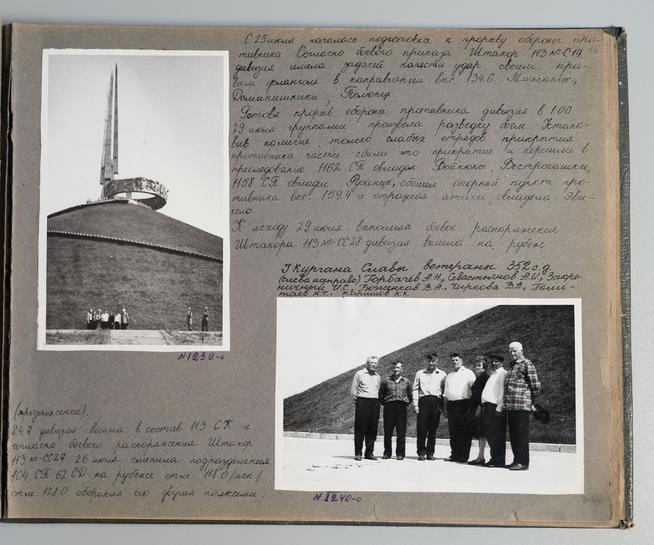 С 25 июля началась подготовка к прорыву обороны про-
тивника Согласно боевого приказа Штакор 113 №-С19
дивизия имела задачей нанести удар своим пра-
вым флангом в направлении выс 134.6
Доминишкики,
Готовя прорыв обороны противника дивизия в 1.00
29 июля группами произвела разведку боем Устано-
вив наличие только слабых отрядов прикрытия
противника части сбили это прикрытие и перешли в
преследование 1162 СП овладел
1158 СП овладел обошел опорный пункт про-
тивника выс 159.4 и отражая атаки овладела
К исходу 29 июля выполняя боевое распоряжение
Штакора 113 №-СС28 дивизия вышла на рубеж
У Кургана Славы ветераны 352 с.д.
(слева направо) Горбачев А.Н, Севастьянов А.И,
И.С., В.А. Чиркова В.А,
N 1239-о
(продолжение).
24.7 дивизия вошла в состав 113 СК и
согласно боевого распоряжения Штакор
113 №-СС27 26 июля сменила подразделения
104 СП 62 СД на рубеже отм. 118.0 /иск/
отм. 128.0 обороняя его двумя полками.
N 1240-о